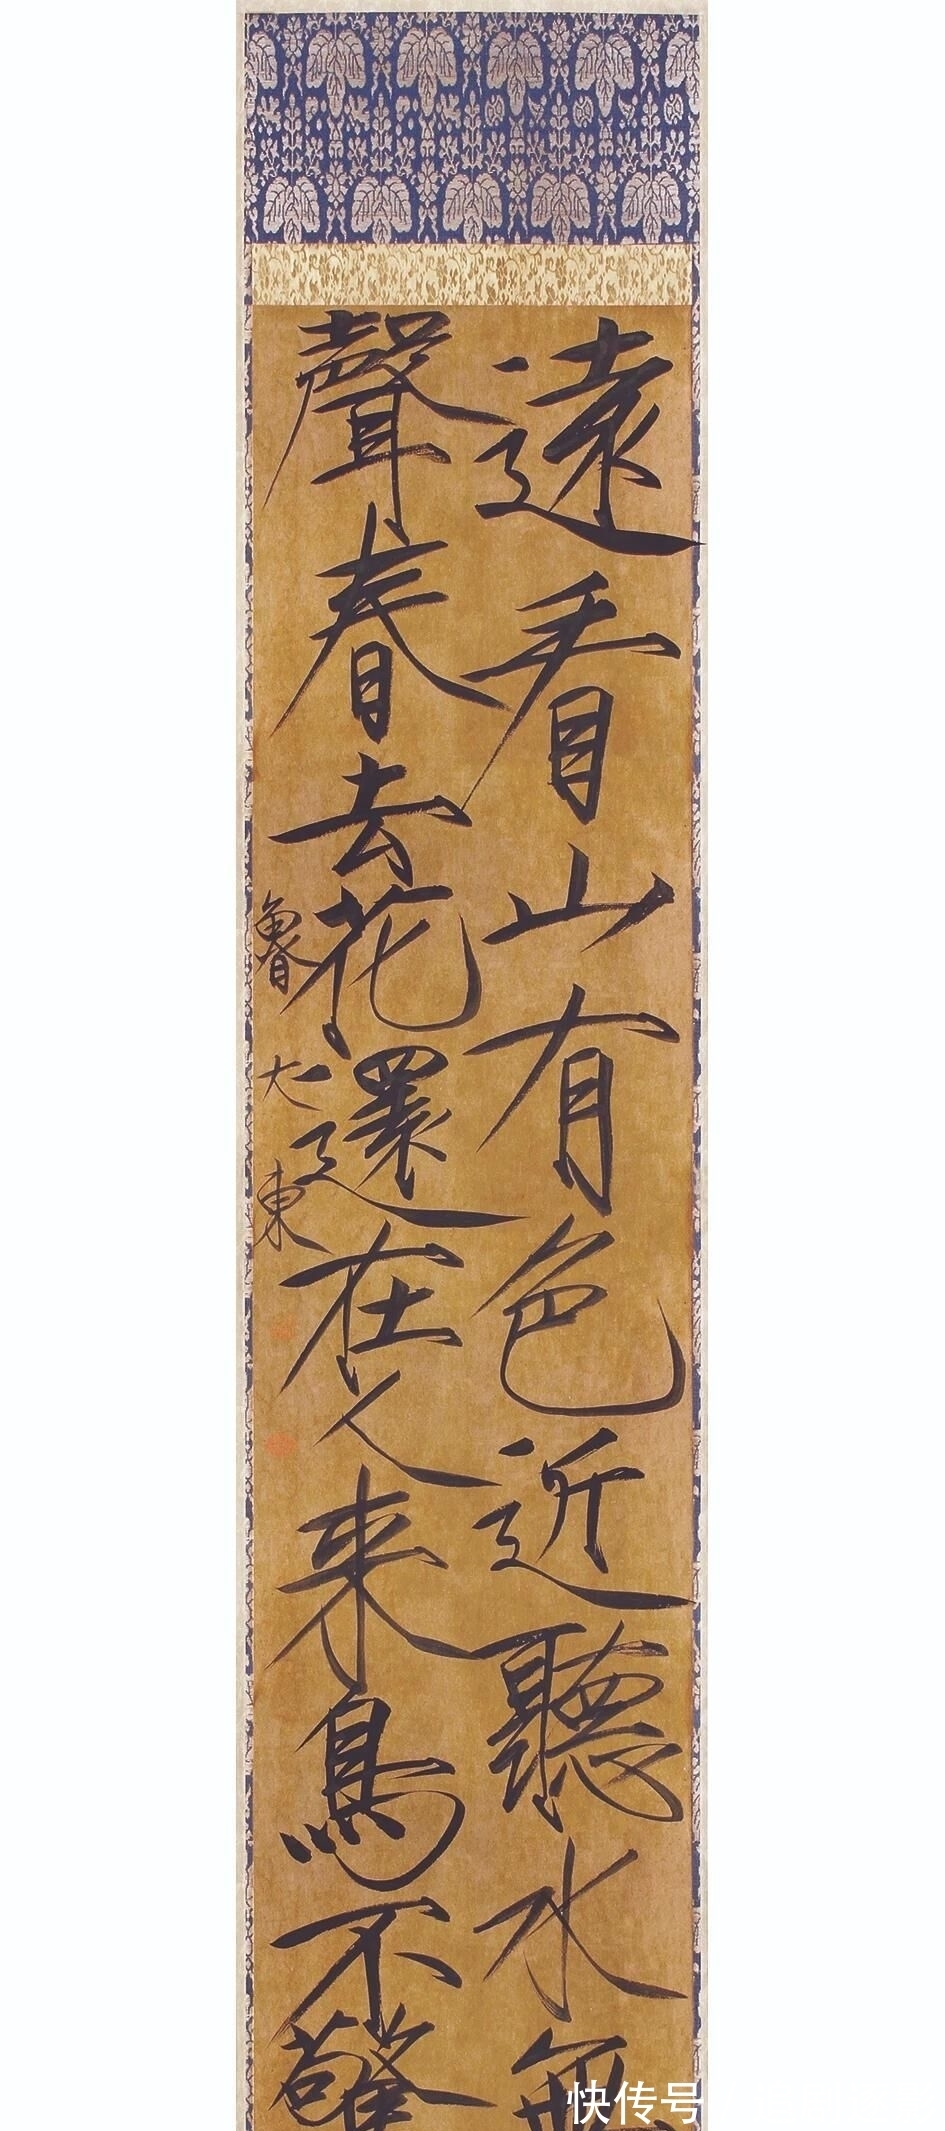 遠看山有色近聽水無
聲春去花還在人来鳥不驚
魯大東
快传号